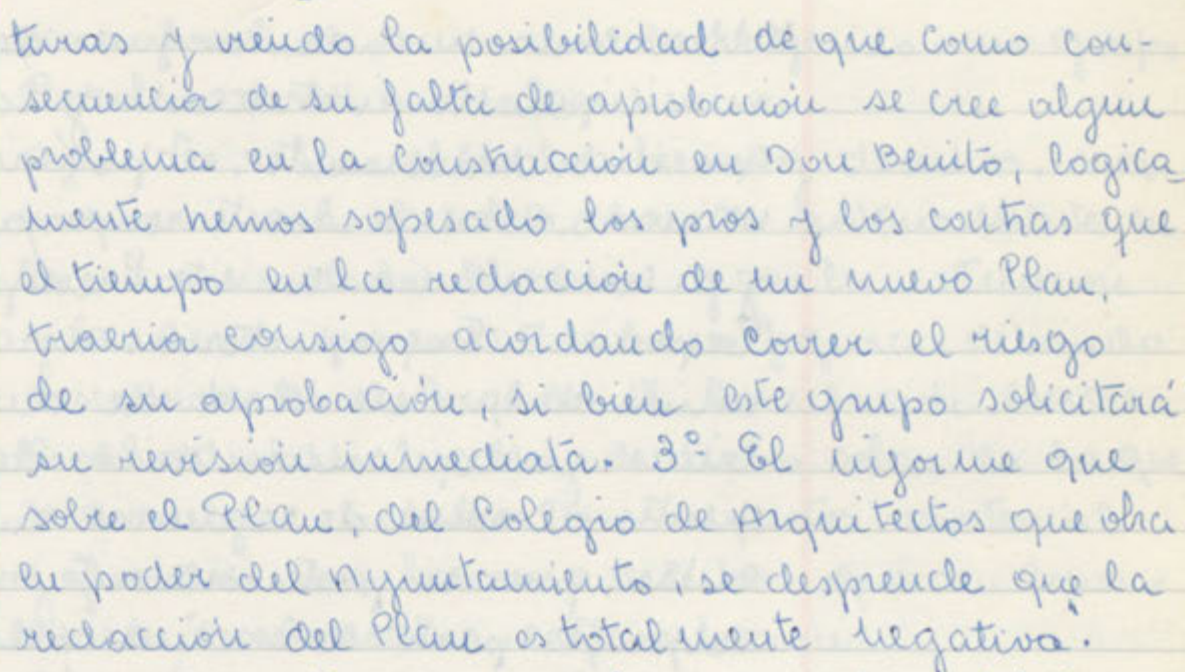 turas y viendo la posibilidad de que como con-
secuencia de su falta de aprobación se cree algun
problema en la construcción en Don Benito, logica-
mente hemos sopesado los pros y los contras que
el tiempo en la redacción de un nuevo Plan,
traeria consigo acordando correr el riesgo
de su aprobación, si bien este grupo solicitará
su revisión inmediata. 3º El informe que
sobre el Plan, del Colegio de Arquitectos que obra
en poder del Ayuntamiento, se desprende que la
redacción del Plan, es totalmente negativa".